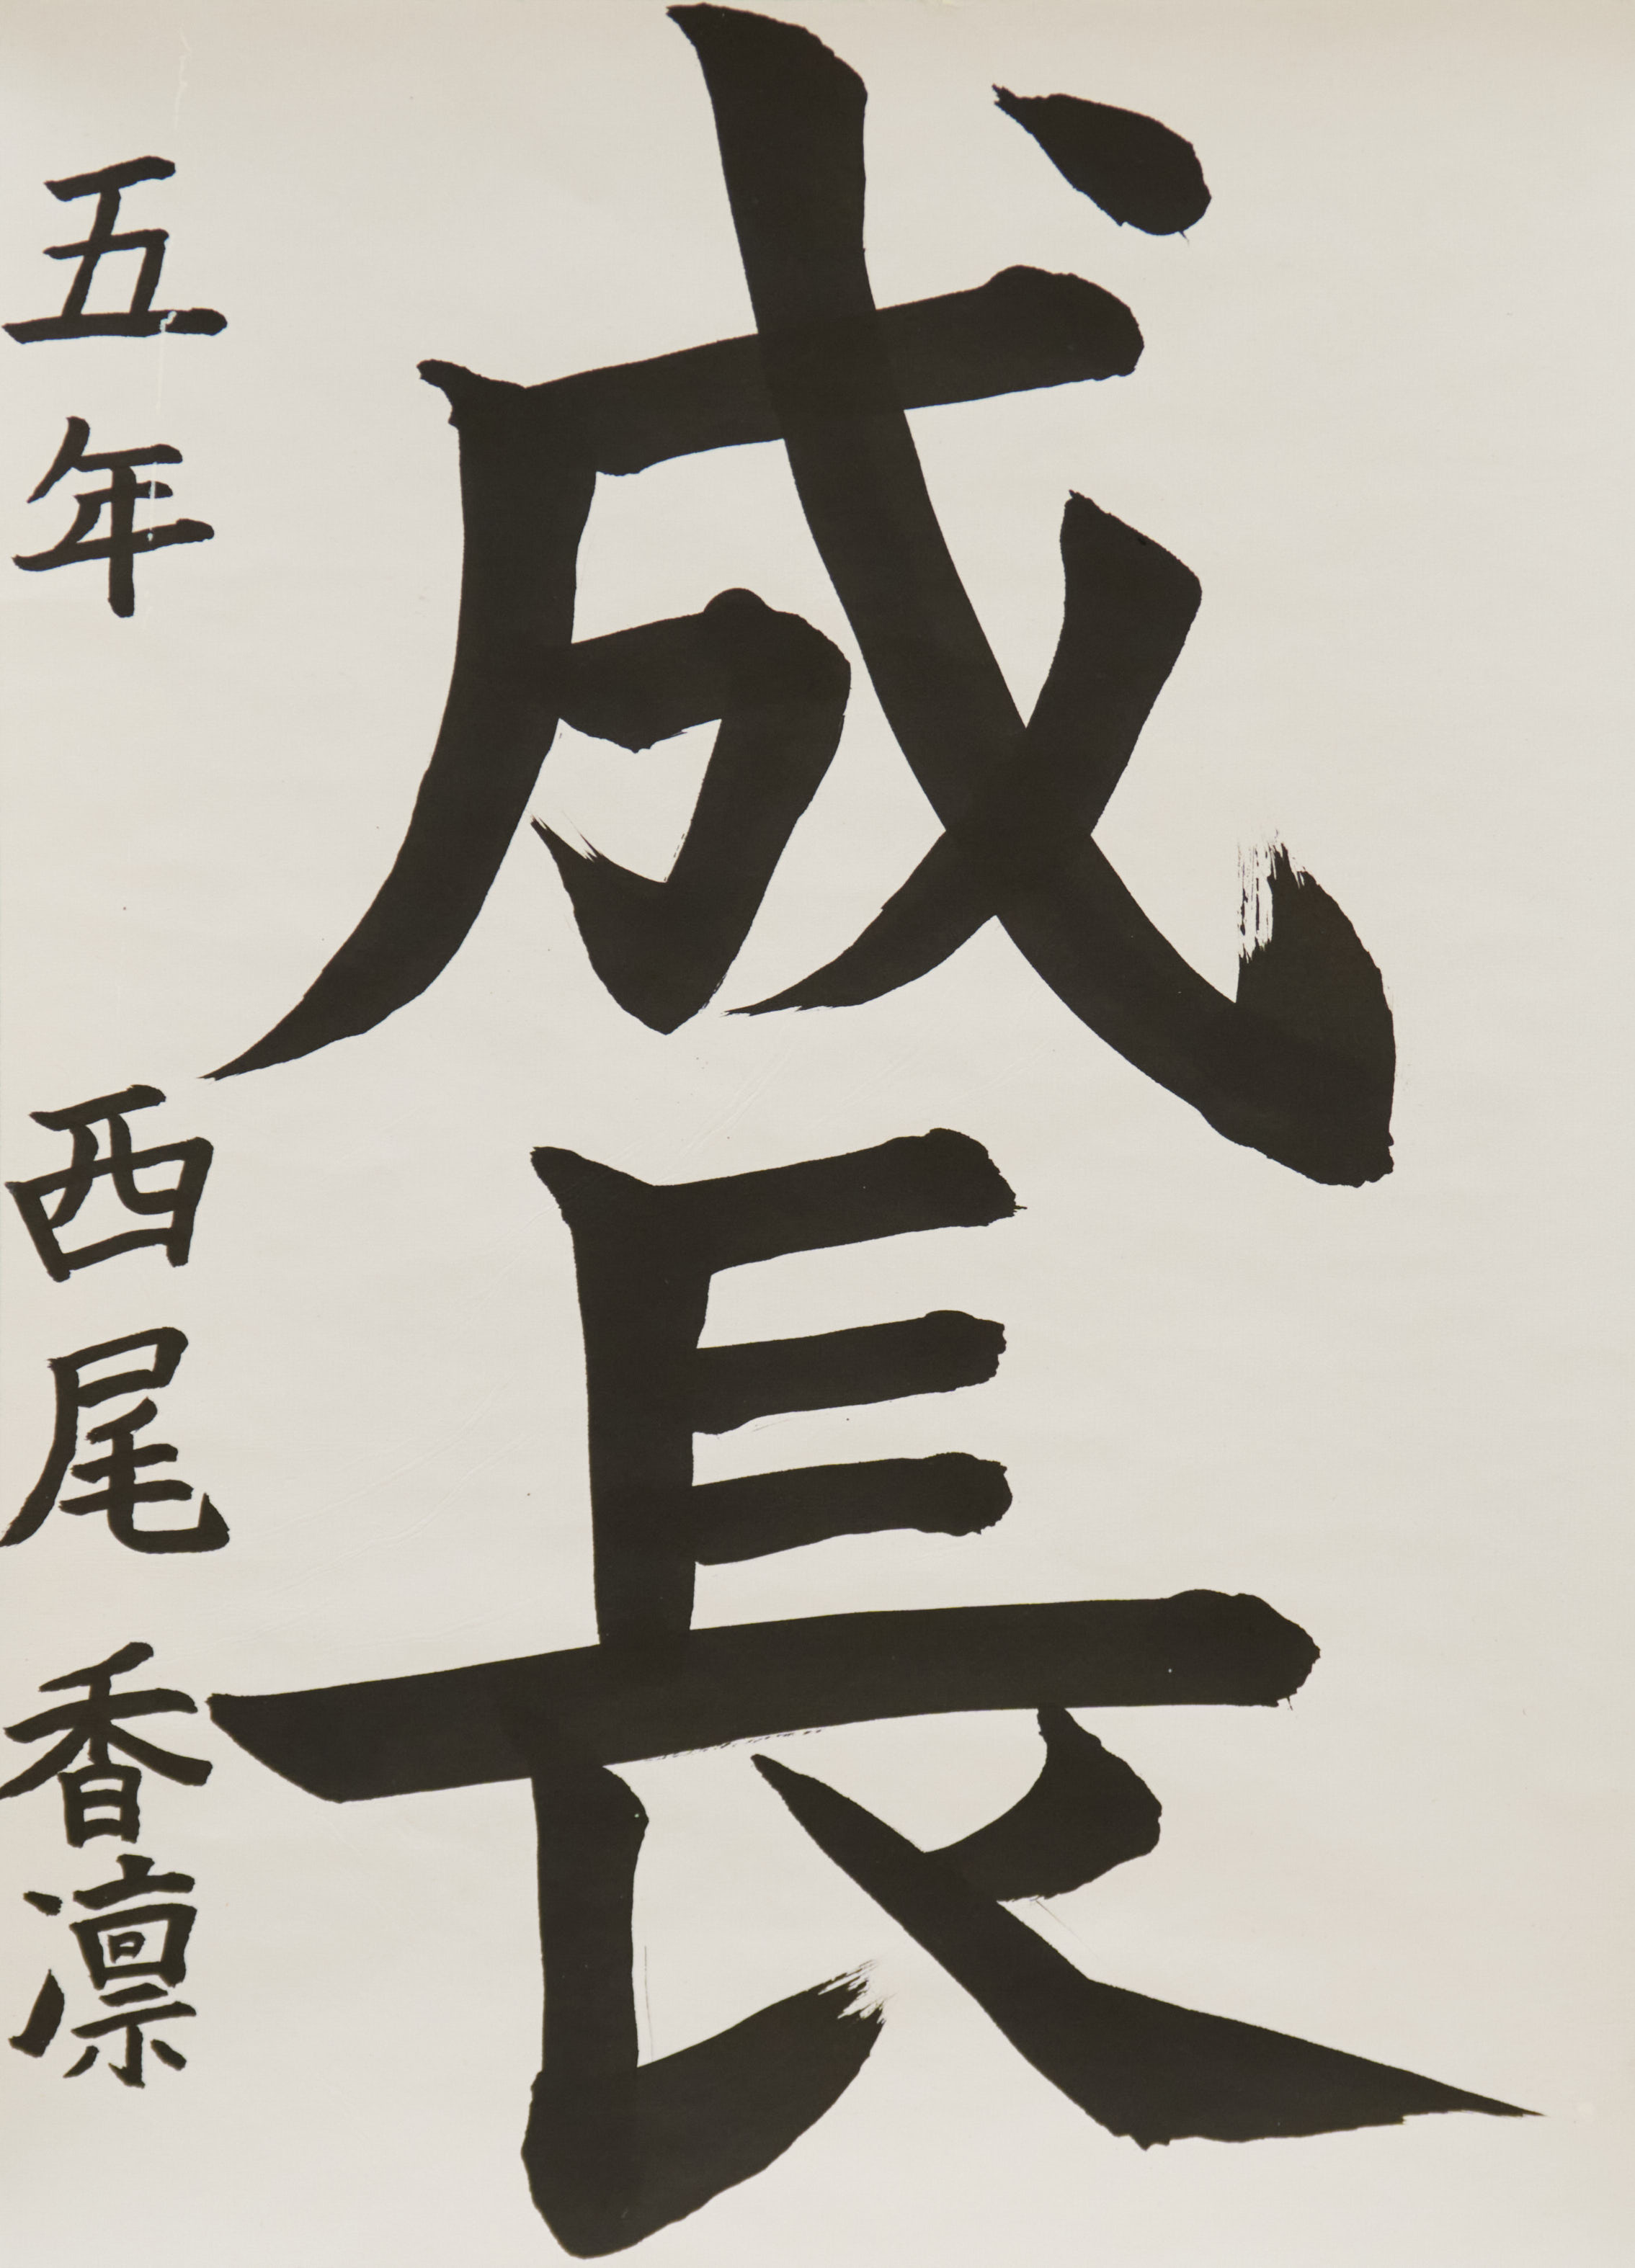 成長
五年 西尾香凛